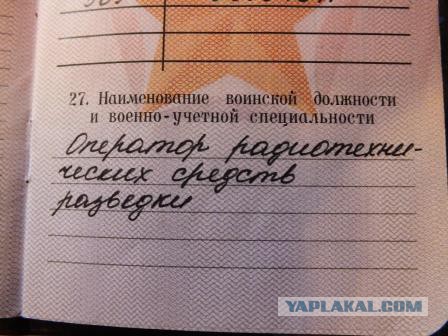 27. Наименование воинской должности
и военно-учетной специальности
Оператор радиотехни-
ческих средств
разведки
YAPLAKAL.COM